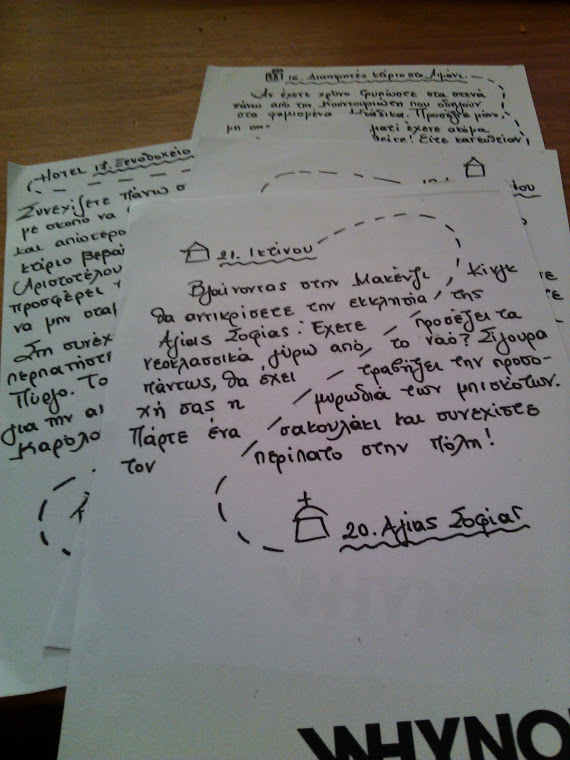 16. Διατηρητέα κτίρια στα Λιμάνι
Αν έχετε χρόνο στα στενά
πάνω από της Κουντουριώτη που οδηγούν
στα φημισμένα Λαδάδικα. Προσέξτε μόνο,
μη γιατί έχετε ακόμα
Είτε κατευθείαν
HOTEL 17. Ξενοδοχείο
Συνεχίζετε πάνω
με σκοπό να
και απώτερο
κτίριο
Αριστοτέλου
προσφέρει
να μην
Στη συνέχ
περπατήστε
Πύργο. Το
για την
Καρόλο
21. Ικτίνου
Βγαίνοντας στην Μακένζι Κινγκ
θα αντικρίσετε την εκκλησία της
Αγίας Σοφίας. Έχετε προσέξει τα
νεοκλασσικά γύρω από το ναό? Σίγουρα
πάντως, θα έχει τραβήξει την προσο-
χή σας η μυρωδιά των μπισκότων.
Πάρτε ένα σακουλάκι και συνεχίστε
τον περίπατο στην πόλη!
20. Αγίας Σοφίας
WHYNO